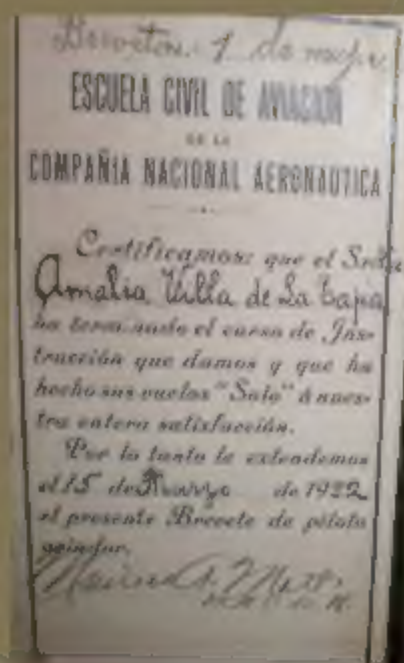 Brevet n. 1 de mujer
ESCUELA CIVIL DE AVIACION
DE LA
COMPAÑIA NACIONAL AERONAUTICA
Certificamos: que el Srta
Amalia Villa de La Tapia
ha terminado el curso de Ins-
trucción que damos y que ha
hecho sus vuelos "Solo" á nues-
tra entera satisfacción.
Por lo tanto le extendemos
el 15 de Marzo de 1922
el presente Brevete de piloto
aviador.